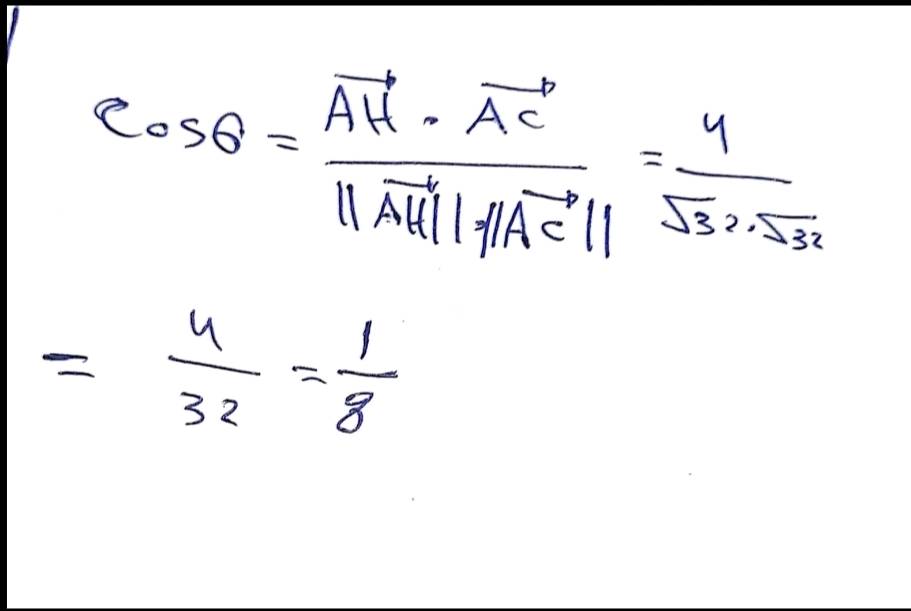 cosθ = (AH→ · AC→) / (||AH→|| · ||AC→||) = 4 / (√32 · √32)
= 4/32 = 1/8